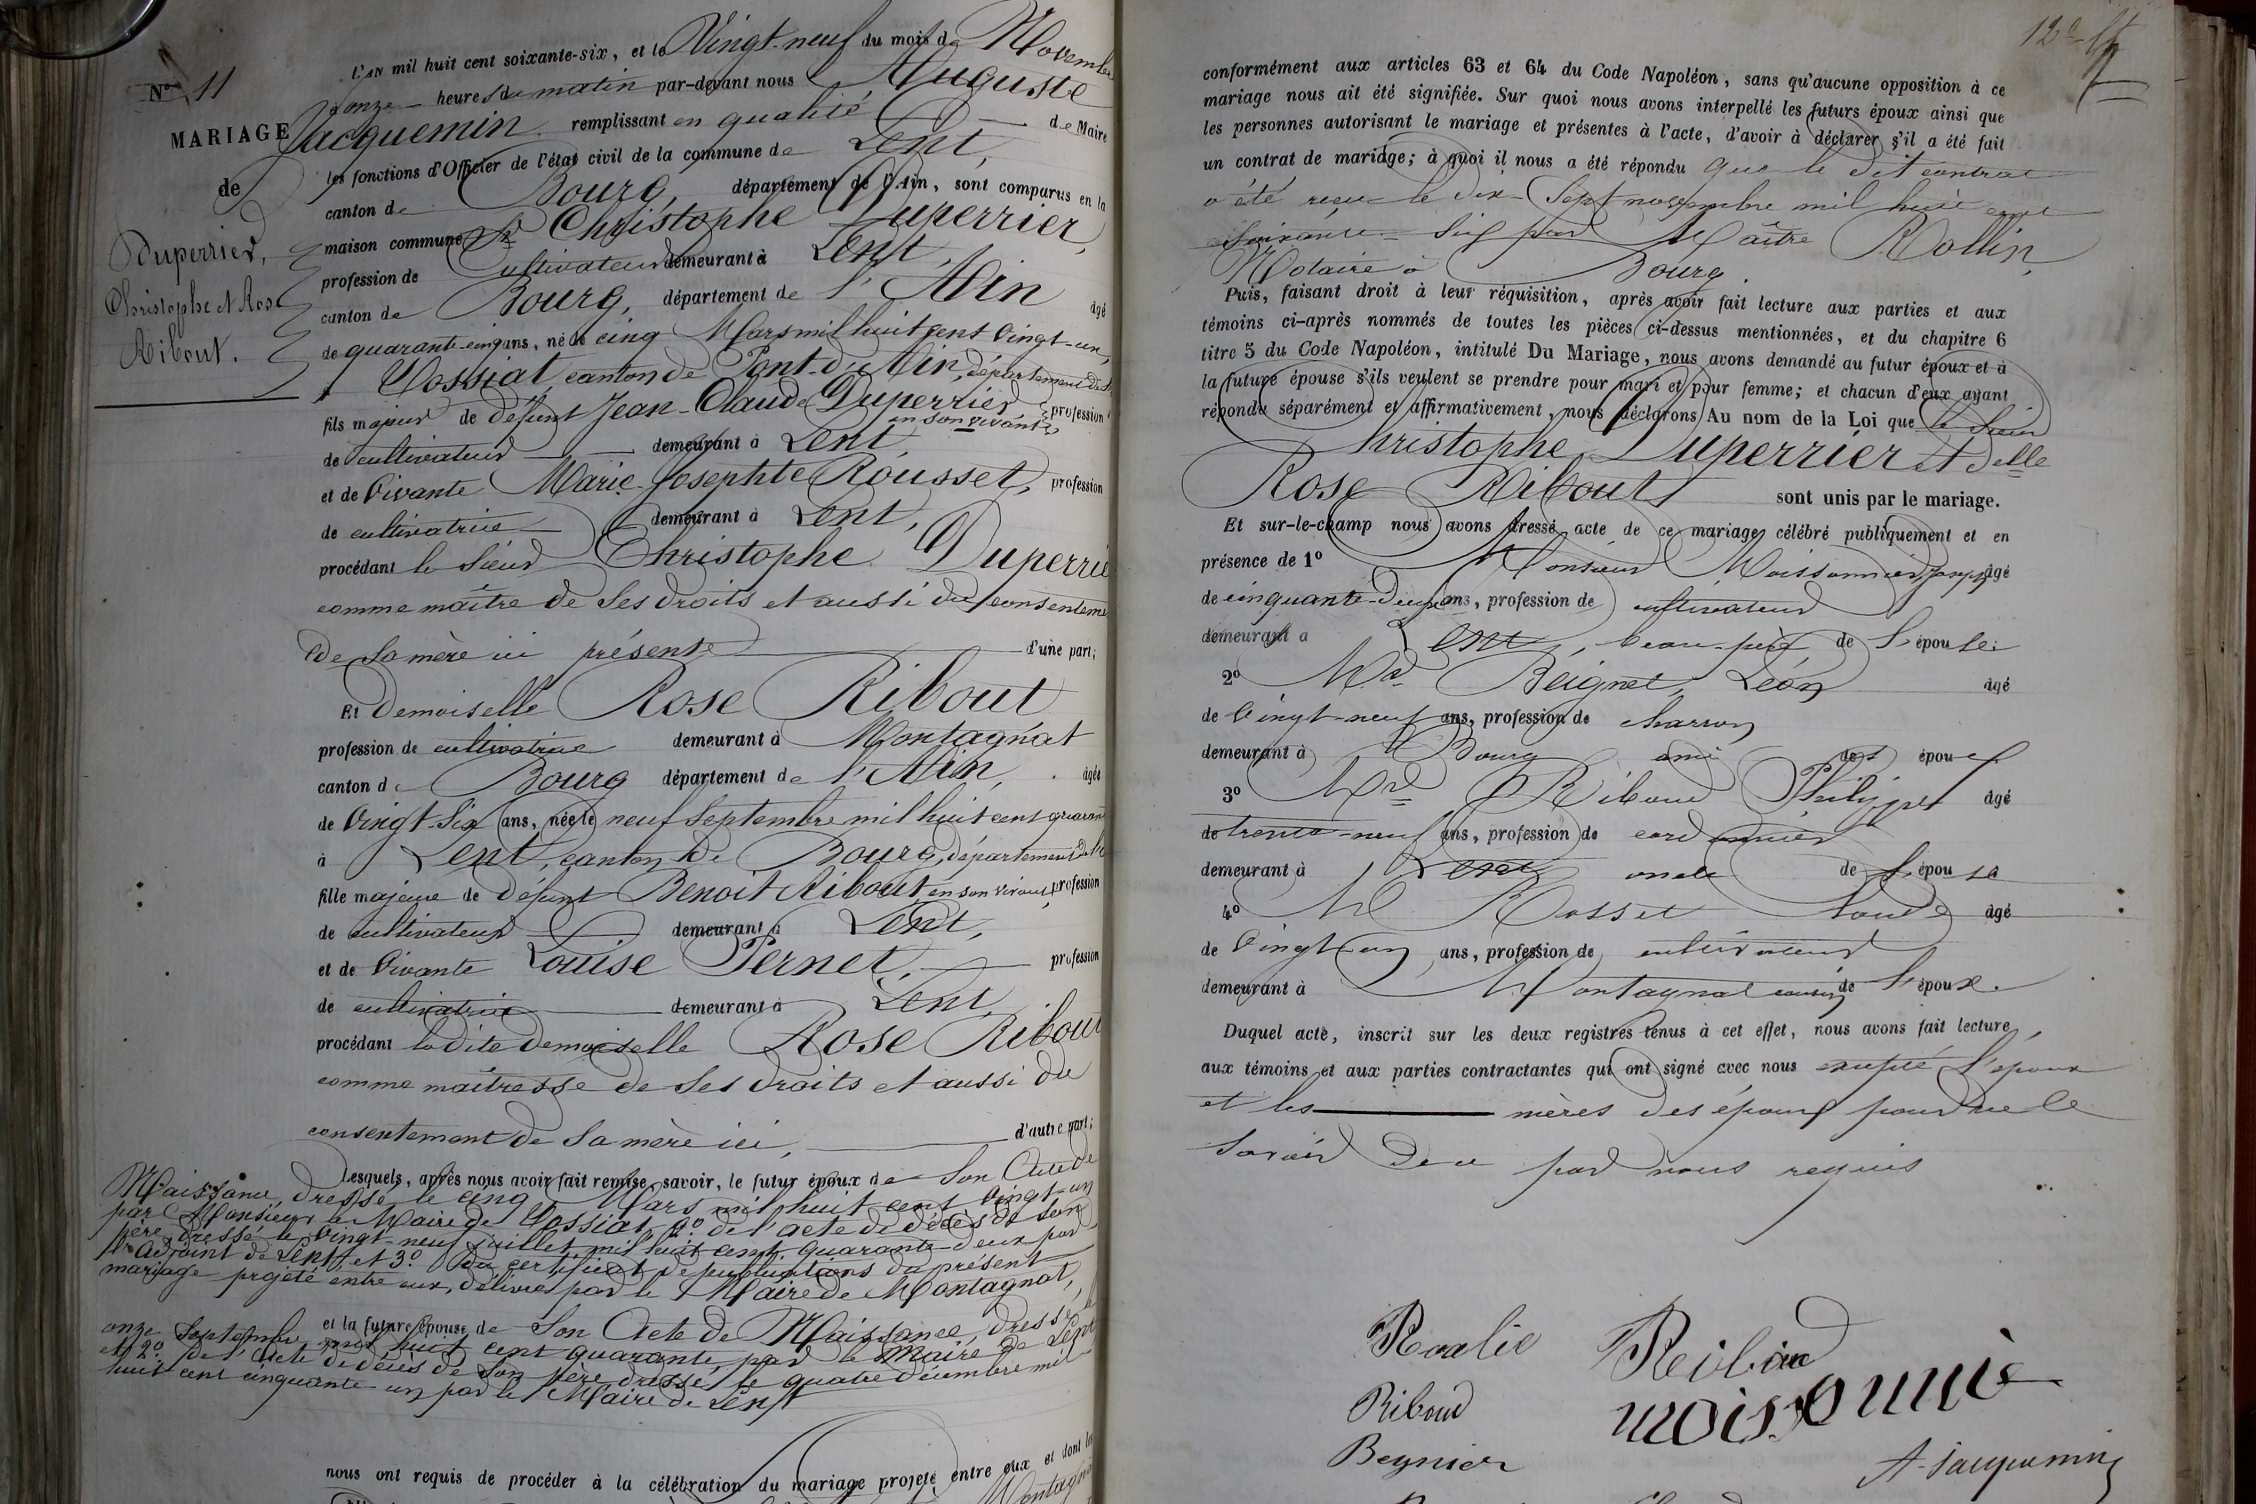 L'an mil huit cent soixante-six, et le Vingt-neuf du mois de Novembre
N° 11
à onze heures du matin par-devant nous Auguste
MARIAGE
Jacquemin remplissant en qualité de Maire
les fonctions d'Officier de l'état civil de la commune de Lent,
de
canton de Bourg, département de l'Ain, sont comparus en la
Duperrier,
Christophe et Rose
Ribout.
maison commune Sr Christophe Duperrier,
profession de Cultivateur demeurant à Lent,
canton de Bourg, département de l'Ain âgé
de quarante-cinq ans, né le cinq Mars mil huit cent vingt-un,
à Tossiat canton de Pont-d'Ain, département de
fils majeur de défunt Jean-Claude Duperrier en son vivant profession
de cultivateur demeurant à Lent
et de vivante Marie Josephte Rousset, profession
de cultivatrice demeurant à Lent,
procédant le sieur Christophe Duperrie
comme maître de ses droits et aussi du consenteme
de sa mère ici présente d'une part;
Et demoiselle Rose Ribout
profession de cultivatrice demeurant à Montagnat
canton de Bourg département de l'Ain, âgée
de vingt-six ans, née le neuf Septembre mil huit cent quarante
à Lent, canton de Bourg, département de l'
fille majeure de défunt Benoit Ribout en son vivant, profession
de cultivateur demeurant à Lent,
et de vivante Louise Pernet, profession
de cultivatrice demeurant à Lent
procédant la dite Demoiselle Rose Ribout
comme maîtresse de ses droits et aussi du
consentement de sa mère ici, d'autre part;
Lesquels, après nous avoir fait remise, savoir, le futur époux de son Acte de
Naissance, dressé le cinq Mars mil huit cent vingt-un
par Monsieur le Maire de Tossiat, 2° de l'acte de décès de son
père dressé le vingt-neuf juillet mil huit cent quarante-deux par
l'adjoint de Lent, et 3° du certificat de publications du présent
mariage projeté entre eux, délivré par le Maire de Montagnat,
et la future épouse de son Acte de Naissance, dressé le
onze Septembre mil huit cent quarante, par le Maire de Lent
et 2° de l'Acte de décès de son père dressé le quatre décembre mil
huit cent cinquante-un par le Maire de Lent
nous ont requis de procéder à la célébration du mariage projeté entre eux et dont les
Montagnat
12
conformément aux articles 63 et 64 du Code Napoléon, sans qu'aucune opposition à ce
mariage nous ait été signifiée. Sur quoi nous avons interpellé les futurs époux ainsi que
les personnes autorisant le mariage et présentes à l'acte, d'avoir à déclarer s'il a été fait
un contrat de mariage; à quoi il nous a été répondu que le dit contrat
a été reçu le dix-sept novembre mil huit cent
soixante-six par Maître Rollin,
Notaire à Bourg.
Puis, faisant droit à leur réquisition, après avoir fait lecture aux parties et aux
témoins ci-après nommés de toutes les pièces ci-dessus mentionnées, et du chapitre 6
titre 5 du Code Napoléon, intitulé Du Mariage, nous avons demandé au futur époux et à
la future épouse s'ils veulent se prendre pour mari et pour femme; et chacun d'eux ayant
répondu séparément et affirmativement, nous déclarons Au nom de la Loi que le Sieur
Christophe Duperrier et delle
Rose Ribout sont unis par le mariage.
Et sur-le-champ nous avons dressé acte de ce mariage célébré publiquement et en
présence de 1° Monsieur Moissonnier âgé
de cinquante-deux ans, profession de cultivateur
demeurant à Lent, beau-père de l'épouse;
2° Mr Beignet, Léon âgé
de vingt-neuf ans, profession de charron
demeurant à Bourg ami des époux
3° Mr Riboud Philippe âgé
de trente-neuf ans, profession de cordonnier
demeurant à Lent oncle de l'épouse
4° Mr Rosset Claude âgé
de vingt-un ans, profession de cultivateur
demeurant à Montagnat cousin de l'époux.
Duquel acte, inscrit sur les deux registres tenus à cet effet, nous avons fait lecture,
aux témoins et aux parties contractantes qui ont signé avec nous excepté l'époux
et les mères des époux pour ne le
savoir de ce par nous requis
Rosalie Riboud
Riboud moissonnié
Beynier A. Jacquemin